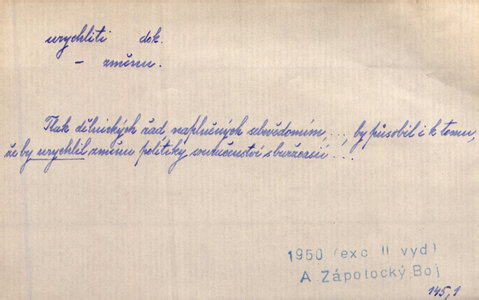 urychliti dok.
– změnu.
Tlak dělnických řad, naplněných sebevědomím, ..., by působil i k tomu,
že by urychlil změnu politiky součinenství s buržoasií ...
1950 (exc II vyd)
A. Zápotocký Boj
145,1